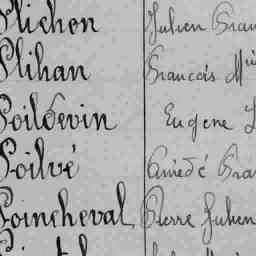 Plichon Julien Fran
Plihan Francois M
Poildevin Eugene
Poilvé Amédé Fra
Poincheval Pierre Julien